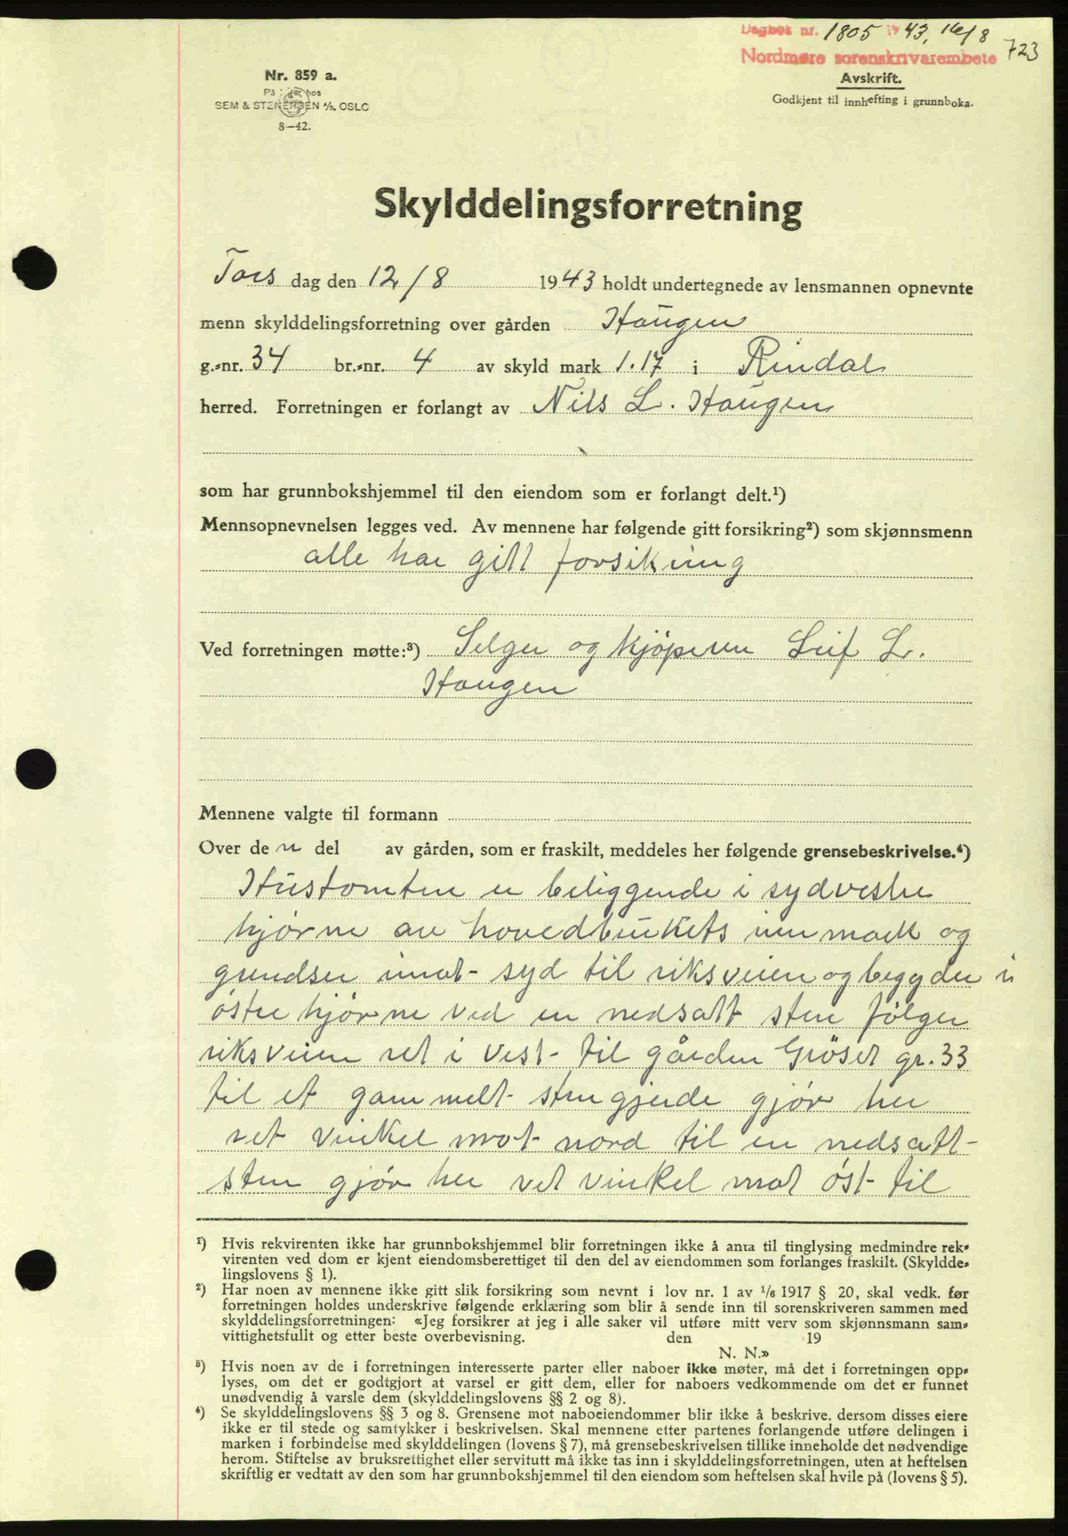 Dagbok nr. 1805 1943, 16/8
723
Nordmøre sorenskrivarembete
Nr. 859 a.
SEM & STENERSEN A/S, OSLO
8—42.
Avskrift.
Godkjent til innhefting i grunnboka.
Skylddelingsforretning
Tors dag den 12/8 1943 holdt undertegnede av lensmannen opnevnte
menn skylddelingsforretning over gården Haugen
g.-nr. 34 br.-nr. 4 av skyld mark 1.17 i Rindal
herred. Forretningen er forlangt av Nils L. Haugen
som har grunnbokshjemmel til den eiendom som er forlangt delt.¹)
Mennsopnevnelsen legges ved. Av mennene har følgende gitt forsikring²) som skjønnsmenn
alle har gitt forsikring
Ved forretningen møtte:³) Selger og kjöperen Leif L.
Haugen
Mennene valgte til formann
Over de n del av gården, som er fraskilt, meddeles her følgende grensebeskrivelse.⁴)
Hustomten er beliggende i sydvestre
hjörne av hovedbrukets innmark og
grendser imot syd til riksveien og begynder i
östre hjörne ved en nedsatt sten fölger
riksveien ret i vest til gården Gröset gr. 33
til et gammelt stengjerde gjör her
ret vinkel mot nord til en nedsatt
sten gjör her ret vinkel mot öst til
¹) Hvis rekvirenten ikke har grunnbokshjemmel blir forretningen ikke å anta til tinglysing medmindre rek-
virenten ved dom er kjent eiendomsberettiget til den del av eiendommen som forlanges fraskilt. (Skyldde-
lingslovens § 1).
²) Har noen av mennene ikke gitt slik forsikring som nevnt i lov nr. 1 av ¹/₆ 1917 § 20, skal vedk. før
forretningen holdes underskrive følgende erklæring som blir å sende inn til sorenskriveren sammen med
skylddelingsforretningen: «Jeg forsikrer at jeg i alle saker vil utføre mitt verv som skjønnsmann sam-
vittighetsfullt og etter beste overbevisning. den 19
N. N.»
³) Hvis noen av de i forretningen interesserte parter eller naboer ikke møter, må det i forretningen opp-
lyses, om det er godtgjort at varsel er gitt dem, eller for naboers vedkommende om det er funnet
unødvendig å varsle dem (skylddelingslovens §§ 2 og 8).
⁴) Se skylddelingslovens §§ 3 og 8. Grensene mot naboeiendommer blir ikke å beskrive, dersom disses eiere
ikke er til stede og samtykker i beskrivelsen. Skal mennene etter partenes forlangende utføre delingen i
marken i forbindelse med skylddelingen (lovens § 7), må grensebeskrivelsen tillike inneholde det nødvendige
herom. Stiftelse av bruksrettighet eller servitutt må ikke tas inn i skylddelingsforretningen, uten at heftelsen
skriftlig er vedtatt av den som har grunnbokshjemmel til den eiendom som heftelsen skal hvile på (lovens § 5).